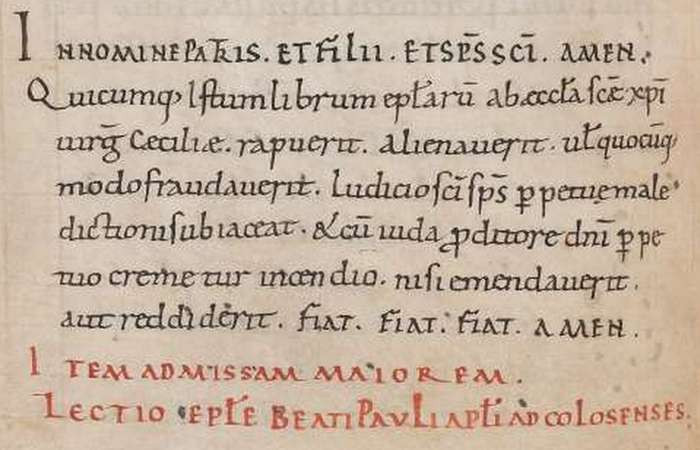 IN NOMINE PATRIS. ET FILII. ET SP̄S SC̄I. AMEN.
Quicumq; Istum librum epłarū ab æccła scæ xpi
uirḡ Ceciliæ. rapuerit. alienauerit. uł quocūq;
modo fraudauerit. Iudicio sc̄i sp̄s ꝑpetuę male
dictioni subiaceat. & cū iuda ꝓditore dnī ꝑpe
tuo cremetur incendio. nisi emendauerit.
aut reddiderit. FIAT. FIAT. FIAT. AMEN.
ITEM AD MISSAM MAIOREM.
LECTIO EPŁE BEATI PAVLI APŁI AD COLOSENSES.